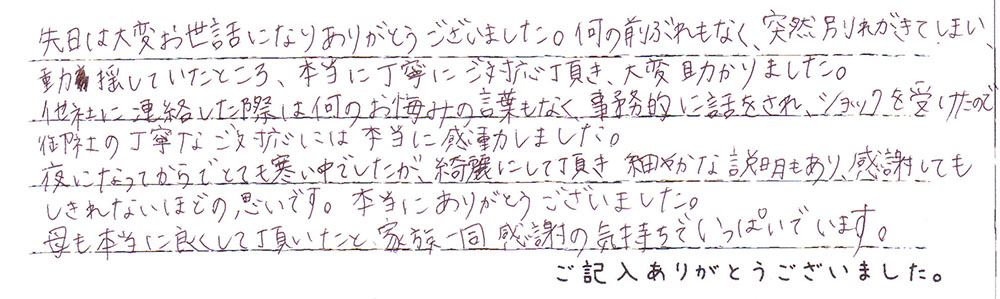 先日は大変お世話になりありがとうございました。何の前ぶれもなく、突然別れがきてしまい、
動揺していたところ、本当に丁寧にご対応頂き、大変助かりました。
他社に連絡した際は何のお悔みの言葉もなく事務的に話をされ、ショックを受けたので
御社の丁寧なご対応には本当に感動しました。
夜になってからでとても寒い中でしたが、綺麗にして頂き 細やかな説明もあり、感謝しても
しきれないほどの思いです。本当にありがとうございました。
母も本当に良くして頂いたと、家族一同感謝の気持ちでいっぱいでいます。
ご記入ありがとうございました。